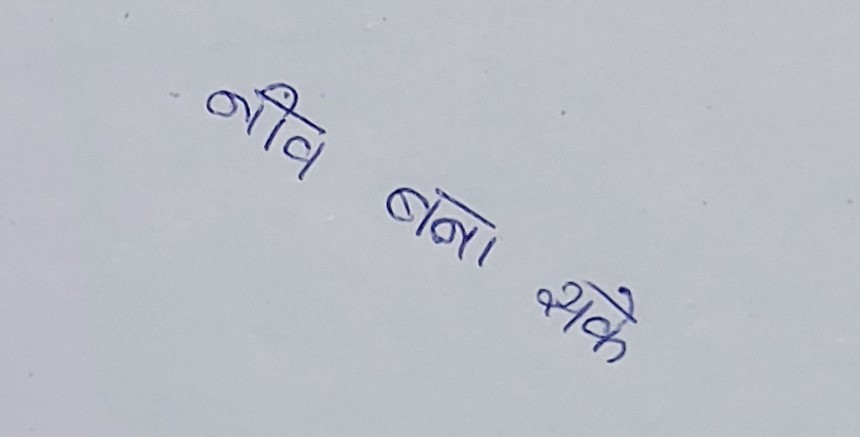 नींव बना सके